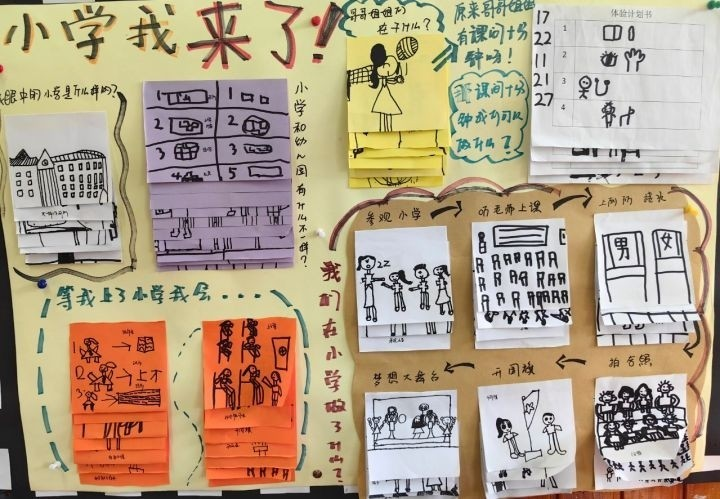 小学我来了!
眼中的小学是什么样的?
小学和幼儿园有什么不一样?
1
2
3
4
1
2
3
5
哥哥姐姐们
在干什么?
原来哥哥姐姐
有课间十分
钟呀!
课间十分
钟我们可以
做什么?
17
22
11
21
27
体验计划书
1
2
3
4
我们在小学做了什么?
参观小学
听老师上课
上厕所
男
女
拍合照
升国旗
梦想大舞台
22
等我上了小学我会...
1
2
3
上不